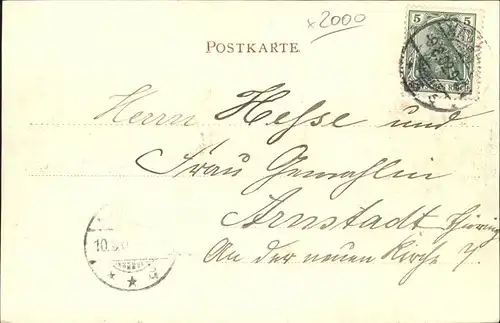 x 2000
POSTKARTE.
5 5
Herrn Hesse und
Frau Gemahlin
Arnstadt Thüringen
An der neuen Kirche 7.
10.